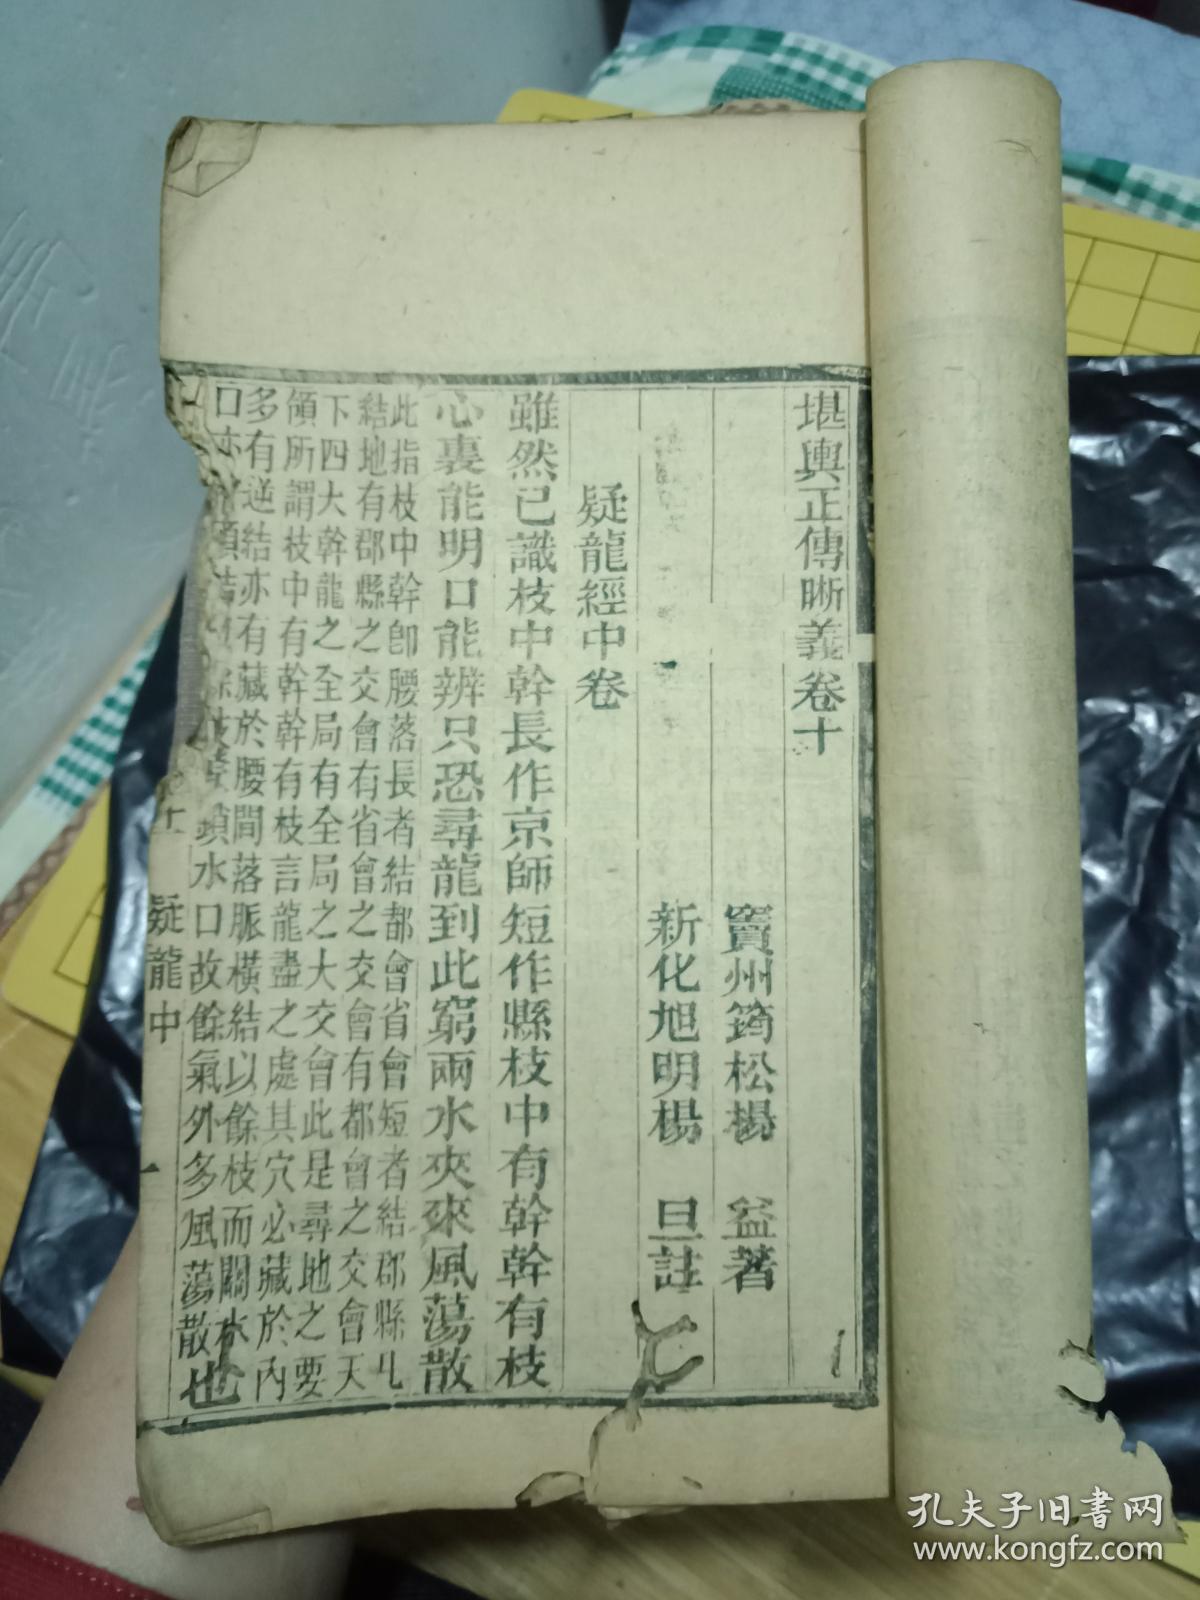 堪輿正傳晰義卷十
竇州筠松楊 益著
新化旭明楊 旦註
疑龍經中卷
雖然已識枝中幹長作京師短作縣枝中有幹幹有枝
心裏能明口能辨只恐尋龍到此窮兩水夾來風蕩散
此指枝中幹卽腰落長者結都會省會短者結郡縣凡
結地有郡縣之交會有省會之交會有都會之交會天
下四大幹龍之全局有全局之大交會此是尋地之要
領所謂枝中有幹幹有枝言龍盡之處其穴必藏於內
多有逆結亦有藏於腰間落脈橫結以餘枝而關水
口亦 鎖水口故餘氣外多風蕩散也
十 疑龍中 一
孔夫子旧书网
www.kongfz.com